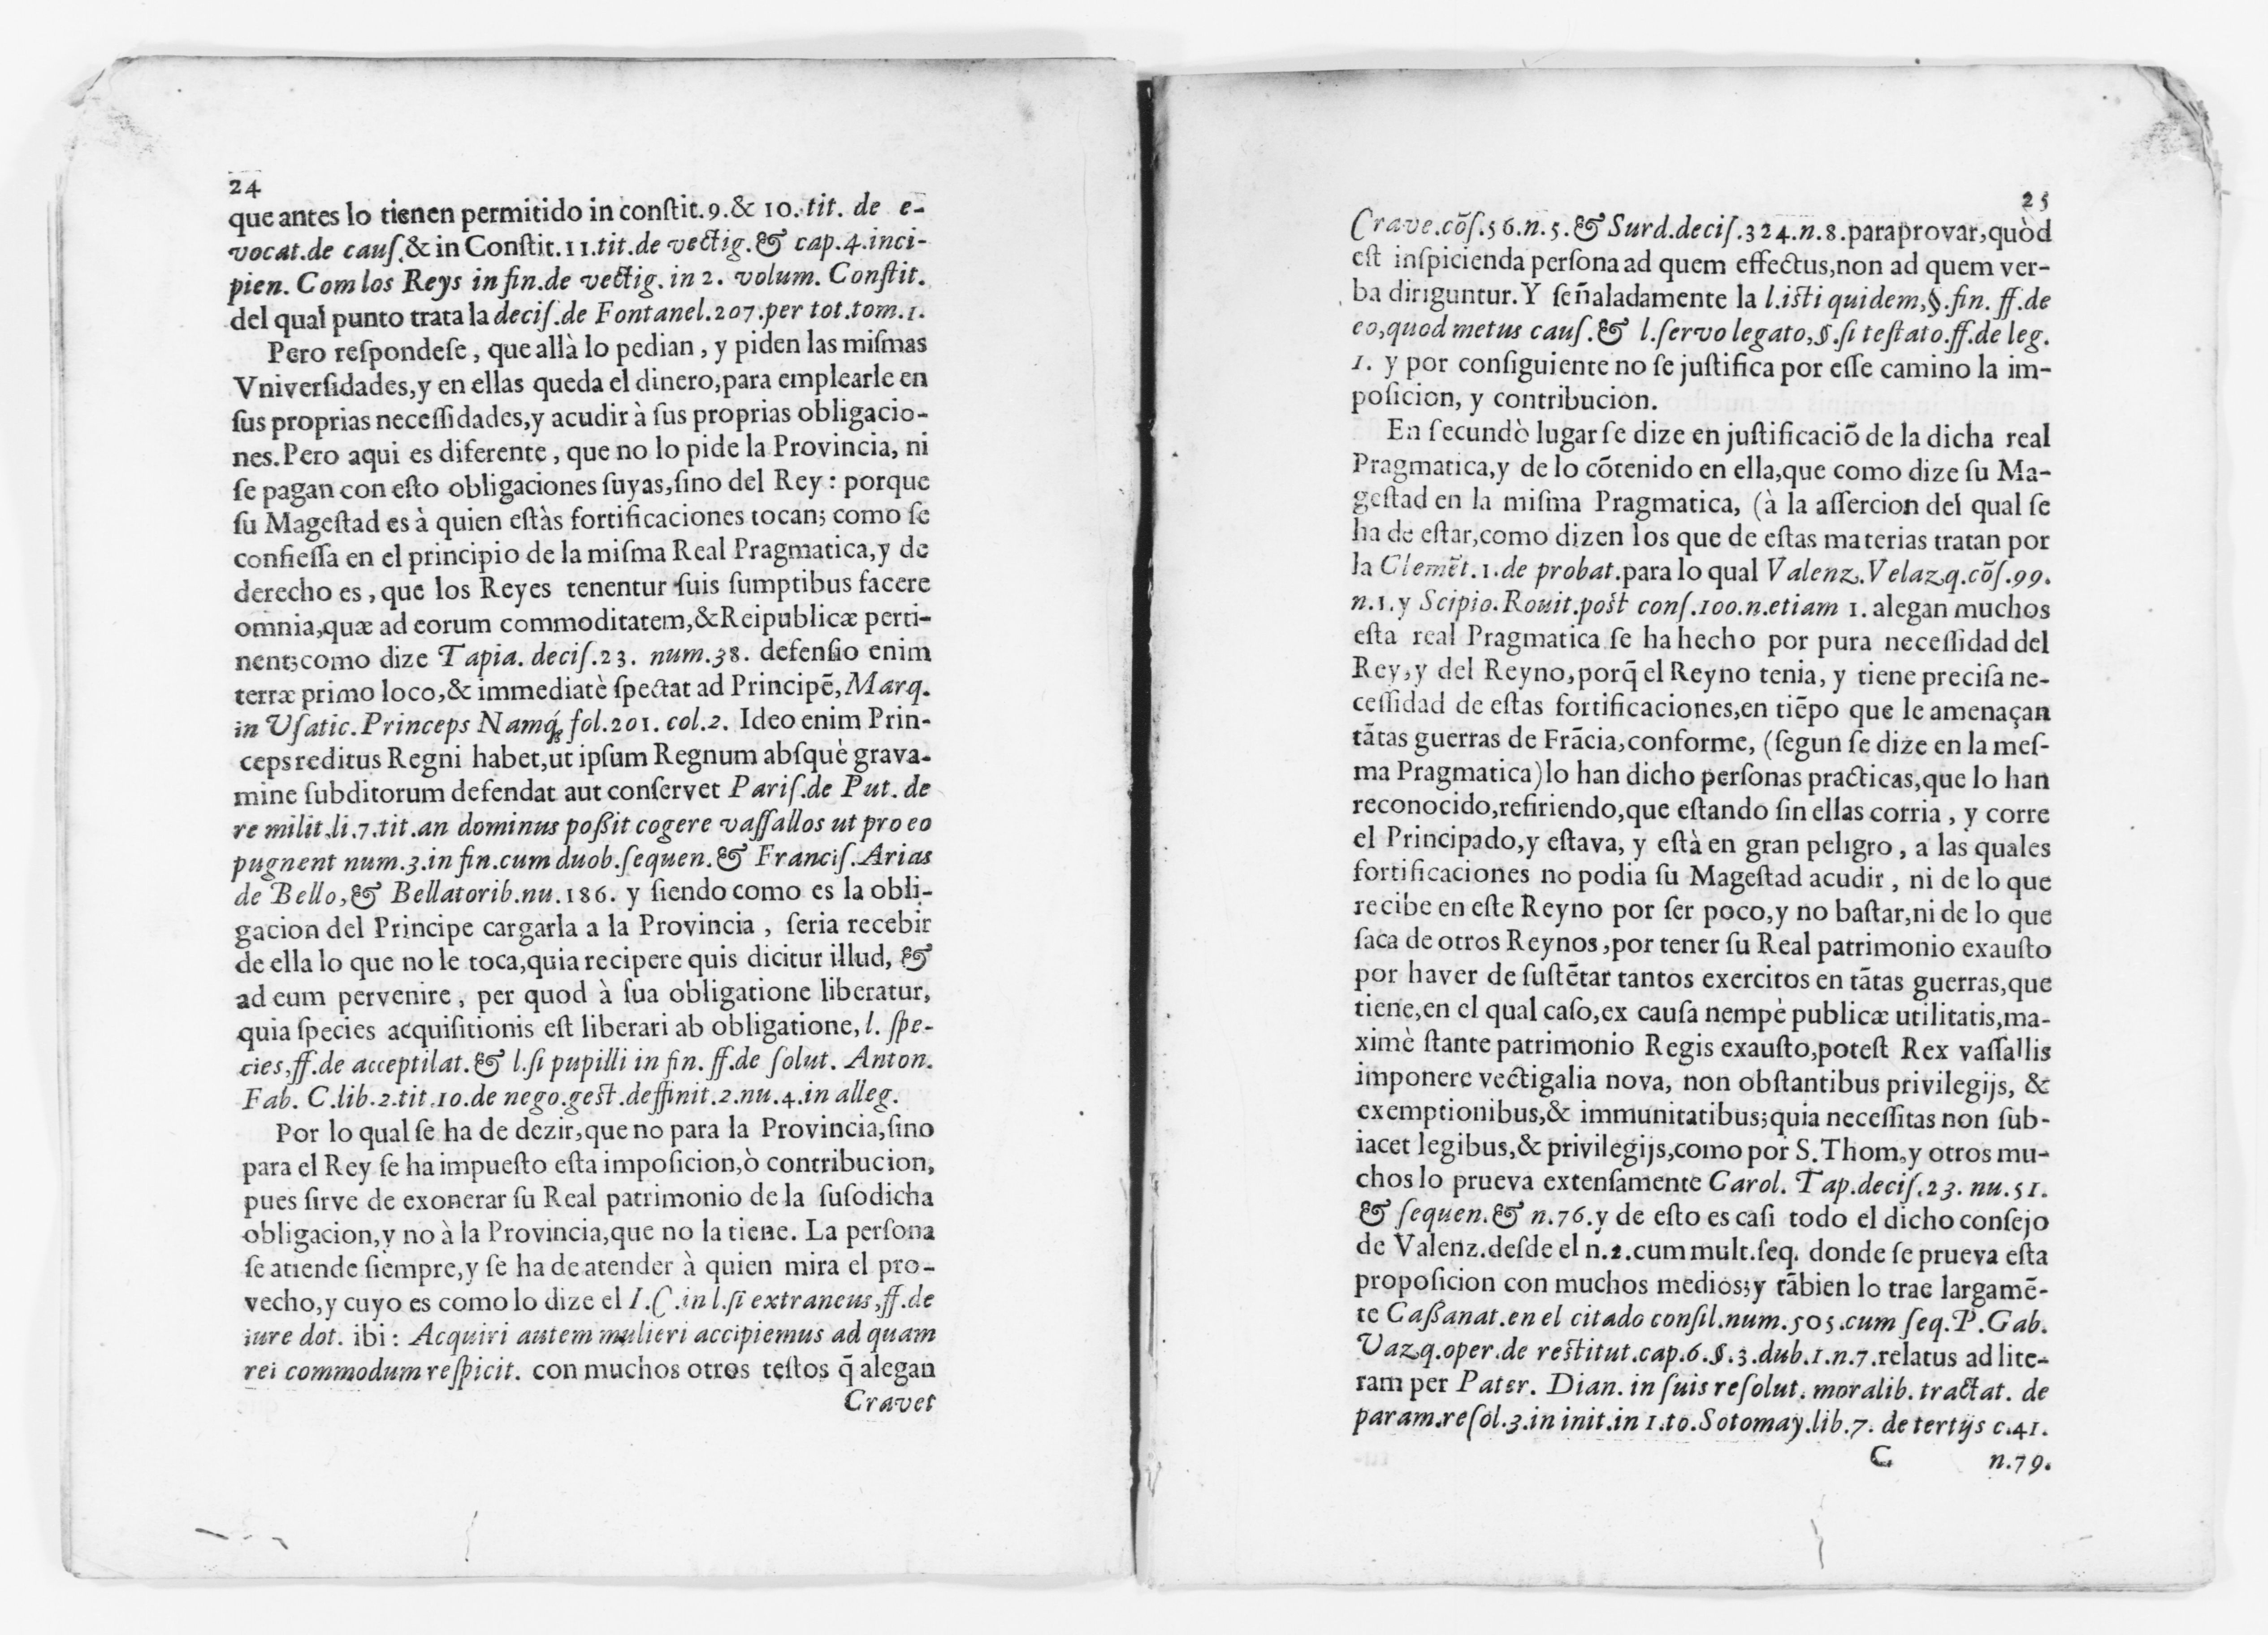 24
que antes lo tienen permitido in conſtit.9.& 10. tit. de e-
vocat.de cauſ.& in Conſtit.11.tit.de vectig.& cap.4.inci-
pien. Com los Reys in fin.de vectig. in 2. volum. Conſtit.
del qual punto trata la deciſ.de Fontanel.207.per tot.tom.1.
Pero reſpondeſe, que allà lo pedian, y piden las miſmas
Vniverſidades,y en ellas queda el dinero,para emplearle en
ſus proprias neceſſidades,y acudir à ſus proprias obligacio-
nes.Pero aqui es diferente, que no lo pide la Provincia, ni
ſe pagan con eſto obligaciones ſuyas,ſino del Rey: porque
ſu Mageſtad es à quien eſtàs fortificaciones tocan; como ſe
confieſſa en el principio de la miſma Real Pragmatica,y de
derecho es, que los Reyes tenentur ſuis ſumptibus facere
omnia,quæ ad eorum commoditatem,&Reipublicæ perti-
nent;como dize Tapia. deciſ.23. num.38. defenſio enim
terræ primo loco,& immediatè ſpectat ad Principē, Marq.
in Uſatic. Princeps Namq́; fol.201. col.2. Ideo enim Prin-
ceps reditus Regni habet,ut ipſum Regnum abſquè grava-
mine ſubditorum defendat aut conſervet Pariſ.de Put. de
re milit.li.7.tit.an dominus poßit cogere vaſſallos ut pro eo
pugnent num.3.in fin.cum duob.ſequen.& Franciſ.Arias
de Bello,& Bellatorib.nu.186. y ſiendo como es la obli-
gacion del Principe cargarla a la Provincia, ſeria recebir
de ella lo que no le toca,quia recipere quis dicitur illud, &
ad eum pervenire, per quod à ſua obligatione liberatur,
quia ſpecies acquiſitionis eſt liberari ab obligatione, l. ſpe-
cies,ff.de acceptilat.& l.ſi pupilli in fin. ff.de ſolut. Anton.
Fab. C.lib.2.tit.10.de nego.geſt.deffinit.2.nu.4.in alleg.
Por lo qual ſe ha de dezir,que no para la Provincia,ſino
para el Rey ſe ha impueſto eſta impoſicion,ò contribucion,
pues ſirve de exonerar ſu Real patrimonio de la ſuſodicha
obligacion,y no à la Provincia,que no la tiene. La perſona
ſe atiende ſiempre,y ſe ha de atender à quien mira el pro-
vecho,y cuyo es como lo dize el I.C.in l.ſi extraneus,ff.de
iure dot. ibi: Acquiri autem mulieri accipiemus ad quam
rei commodum reſpicit. con muchos otros teſtos q̃ alegan
Cravet
25
Crave.cōſ.56.n.5.& Surd.deciſ.324.n.8.para provar,quòd
eſt inſpicienda perſona ad quem effectus,non ad quem ver-
ba diriguntur. Y ſeñaladamente la l.iſti quidem,§.fin. ff.de
eo,quod metus cauſ.& l.ſervo legato,§.ſi teſtato.ff.de leg.
1. y por conſiguiente no ſe juſtifica por eſſe camino la im-
poſicion, y contribucion.
En ſecundò lugar ſe dize en juſtificaciō de la dicha real
Pragmatica,y de lo cōtenido en ella,que como dize ſu Ma-
geſtad en la miſma Pragmatica, (à la aſſercion del qual ſe
ha de eſtar,como dizen los que de eſtas materias tratan por
la Clemēt.1.de probat.para lo qual Valenz.Velazq.cōſ.99.
n.1.y Scipio.Rouit.poſt conſ.100.n.etiam 1. alegan muchos
eſta real Pragmatica ſe ha hecho por pura neceſſidad del
Rey,y del Reyno,porq̃ el Reyno tenia, y tiene preciſa ne-
ceſſidad de eſtas fortificaciones,en tiēpo que le amenaçan
tātas guerras de Frācia,conforme, (ſegun ſe dize en la meſ-
ma Pragmatica)lo han dicho perſonas practicas,que lo han
reconocido,refiriendo,que eſtando ſin ellas corria, y corre
el Principado,y eſtava, y eſtà en gran peligro, a las quales
fortificaciones no podia ſu Mageſtad acudir, ni de lo que
recibe en eſte Reyno por ſer poco,y no baſtar,ni de lo que
ſaca de otros Reynos,por tener ſu Real patrimonio exauſto
por haver de ſuſtētar tantos exercitos en tātas guerras,que
tiene,en el qual caſo,ex cauſa nempè publicæ utilitatis,ma-
ximè ſtante patrimonio Regis exauſto,poteſt Rex vaſſallis
imponere vectigalia nova, non obſtantibus privilegijs, &
exemptionibus,& immunitatibus;quia neceſſitas non ſub-
iacet legibus,& privilegijs,como por S.Thom.y otros mu-
chos lo prueva extenſamente Carol. Tap.deciſ.23. nu.51.
& ſequen.& n.76.y de eſto es caſi todo el dicho conſejo
de Valenz.deſde el n.2.cum mult.ſeq. donde ſe prueva eſta
propoſicion con muchos medios;y tābien lo trae largamē-
te Caßanat.en el citado conſil.num.505.cum ſeq.P.Gab.
Vazq.oper.de reſtitut.cap.6.§.3.dub.1.n.7.relatus ad lite-
ram per Pater. Dian. in ſuis reſolut. moralib. tractat. de
param.reſol.3.in init.in 1.to.Sotomay.lib.7. de tertijs c.41.
C n.79.